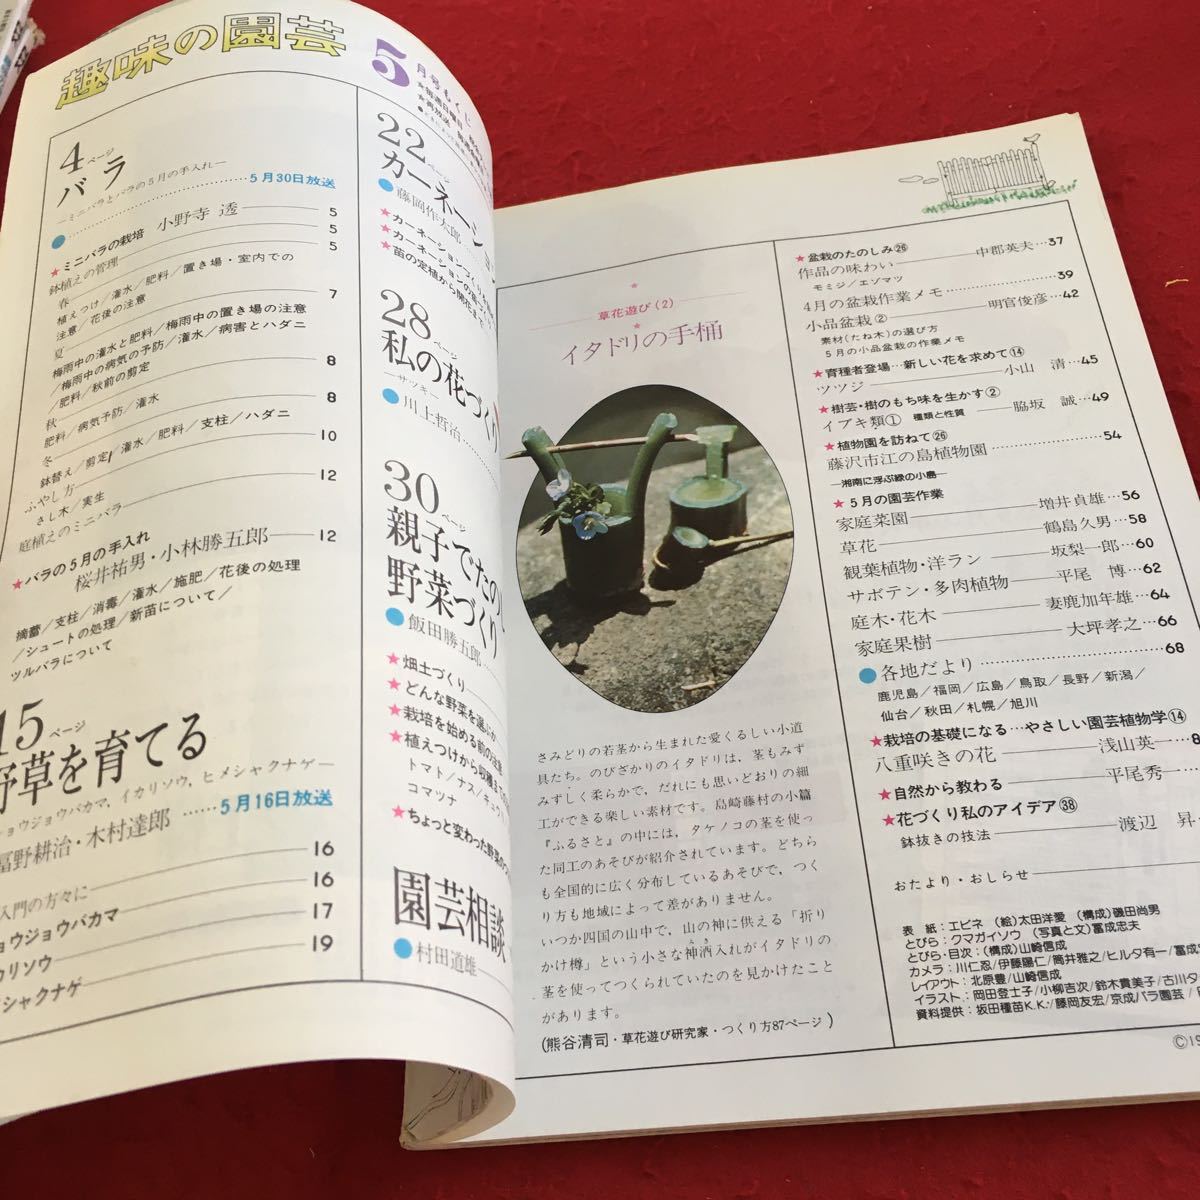 趣味の園芸
5
月号もくじ
4ページ
バラ
―ミニバラとバラの5月の手入れ―
●……………………5月30日放送
★ミニバラの栽培 小野寺 透―5
鉢植えの管理―5
春―5
植えつけ／灌水／肥料／置き場・室内での
注意／花後の注意
夏―7
梅雨中の灌水と肥料／梅雨中の置き場の注意
／梅雨中の病気の予防／灌水／病害とハダニ
／肥料／秋前の剪定
秋―8
肥料／病気予防／灌水
冬―8
鉢替え／剪定／灌水／肥料／支柱／ハダニ
ふやし方―10
さし木／実生
庭植えのミニバラ―12
★バラの5月の手入れ
桜井祐男・小林勝五郎―12
摘蕾／支柱／消毒／灌水／施肥／花後の処理
／シュートの処理／新苗について／
ツルバラについて
15ページ
野草を育てる
ョウジョウバカマ，イカリソウ，ヒメシャクナゲ―
冨野耕治・木村達郎……5月16日放送
入門の方々に―16
ョウジョウバカマ―16
カリソウ―17
シャクナゲ―19
22ページ
カーネーション
●藤岡作太郎
★カーネーションづくり
★カーネーションの
★苗の定植から開花まで
28ページ
私の花づくり
―サツキ―
●川上哲治
30ページ
親子でたの
野菜づくり
●飯田勝五郎
★畑土づくり
★どんな野菜を選ぶか
★栽培を始める前の注意
★植えつけから収穫まで
トマト／ナス／キュウリ
コマツナ
★ちょっと変わった野菜の
園芸相談
●村田道雄
★
草花遊び(2)
★
イタドリの手桶
さみどりの若茎から生まれた愛くるしい小道
具たち。のびざかりのイタドリは，茎もみず
みずしく柔らかで，だれにも思いどおりの細
工ができる楽しい素材です。島崎藤村の小篇
『ふるさと』の中には，タケノコの茎を使っ
た同工のあそびが紹介されています。どちら
も全国的に広く分布しているあそびで，つく
り方も地域によって差がありません。
いつか四国の山中で，山の神に供える「折り
かけ樽」という小さな神酒入れがイタドリの
茎を使ってつくられていたのを見かけたこと
があります。
(熊谷清司・草花遊び研究家・つくり方87ページ)
★盆栽のたのしみ㉖
作品の味わい―中郡英夫…37
モミジ／エゾマツ
4月の盆栽作業メモ……39
小品盆栽②―明官俊彦…42
素材(たね木)の選び方
5月の小品盆栽の作業メモ
★育種者登場…新しい花を求めて⑭
ツツジ―小山 清…45
★樹芸・樹のもち味を生かす②
イブキ類① 種類と性質―脇坂 誠…49
★植物園を訪ねて㉖
藤沢市江の島植物園……54
―湘南に浮ぶ緑の小島―
★5月の園芸作業
家庭菜園―増井貞雄…56
草花―鶴島久男…58
観葉植物・洋ラン―坂梨一郎…60
サボテン・多肉植物―平尾 博…62
庭木・花木―妻鹿加年雄…64
家庭果樹―大坪孝之…66
●各地だより……68
鹿児島／福岡／広島／鳥取／長野／新潟／
仙台／秋田／札幌／旭川
★栽培の基礎になる…やさしい園芸植物学⑭
八重咲きの花―浅山英一…8
★自然から教わる―平尾秀一
★花づくり私のアイデア㊳
鉢抜きの技法―渡辺 昇
おたより・おしらせ
表 紙：エビネ （絵）太田洋愛 （構成）磯田尚男
とびら：クマガイソウ （写真と文）冨成忠夫
とびら・目次：（構成）山崎信成
カメラ：川仁忍／伊藤陽仁／筒井雅之／ヒルタ有一／冨成忠
レイアウト：北原豊／山崎信成
イラスト：岡田登士子／小柳吉次／鈴木貴美子／古川タ
資料提供：坂田種苗K.K.／藤岡友宏／京成バラ園芸／
©19